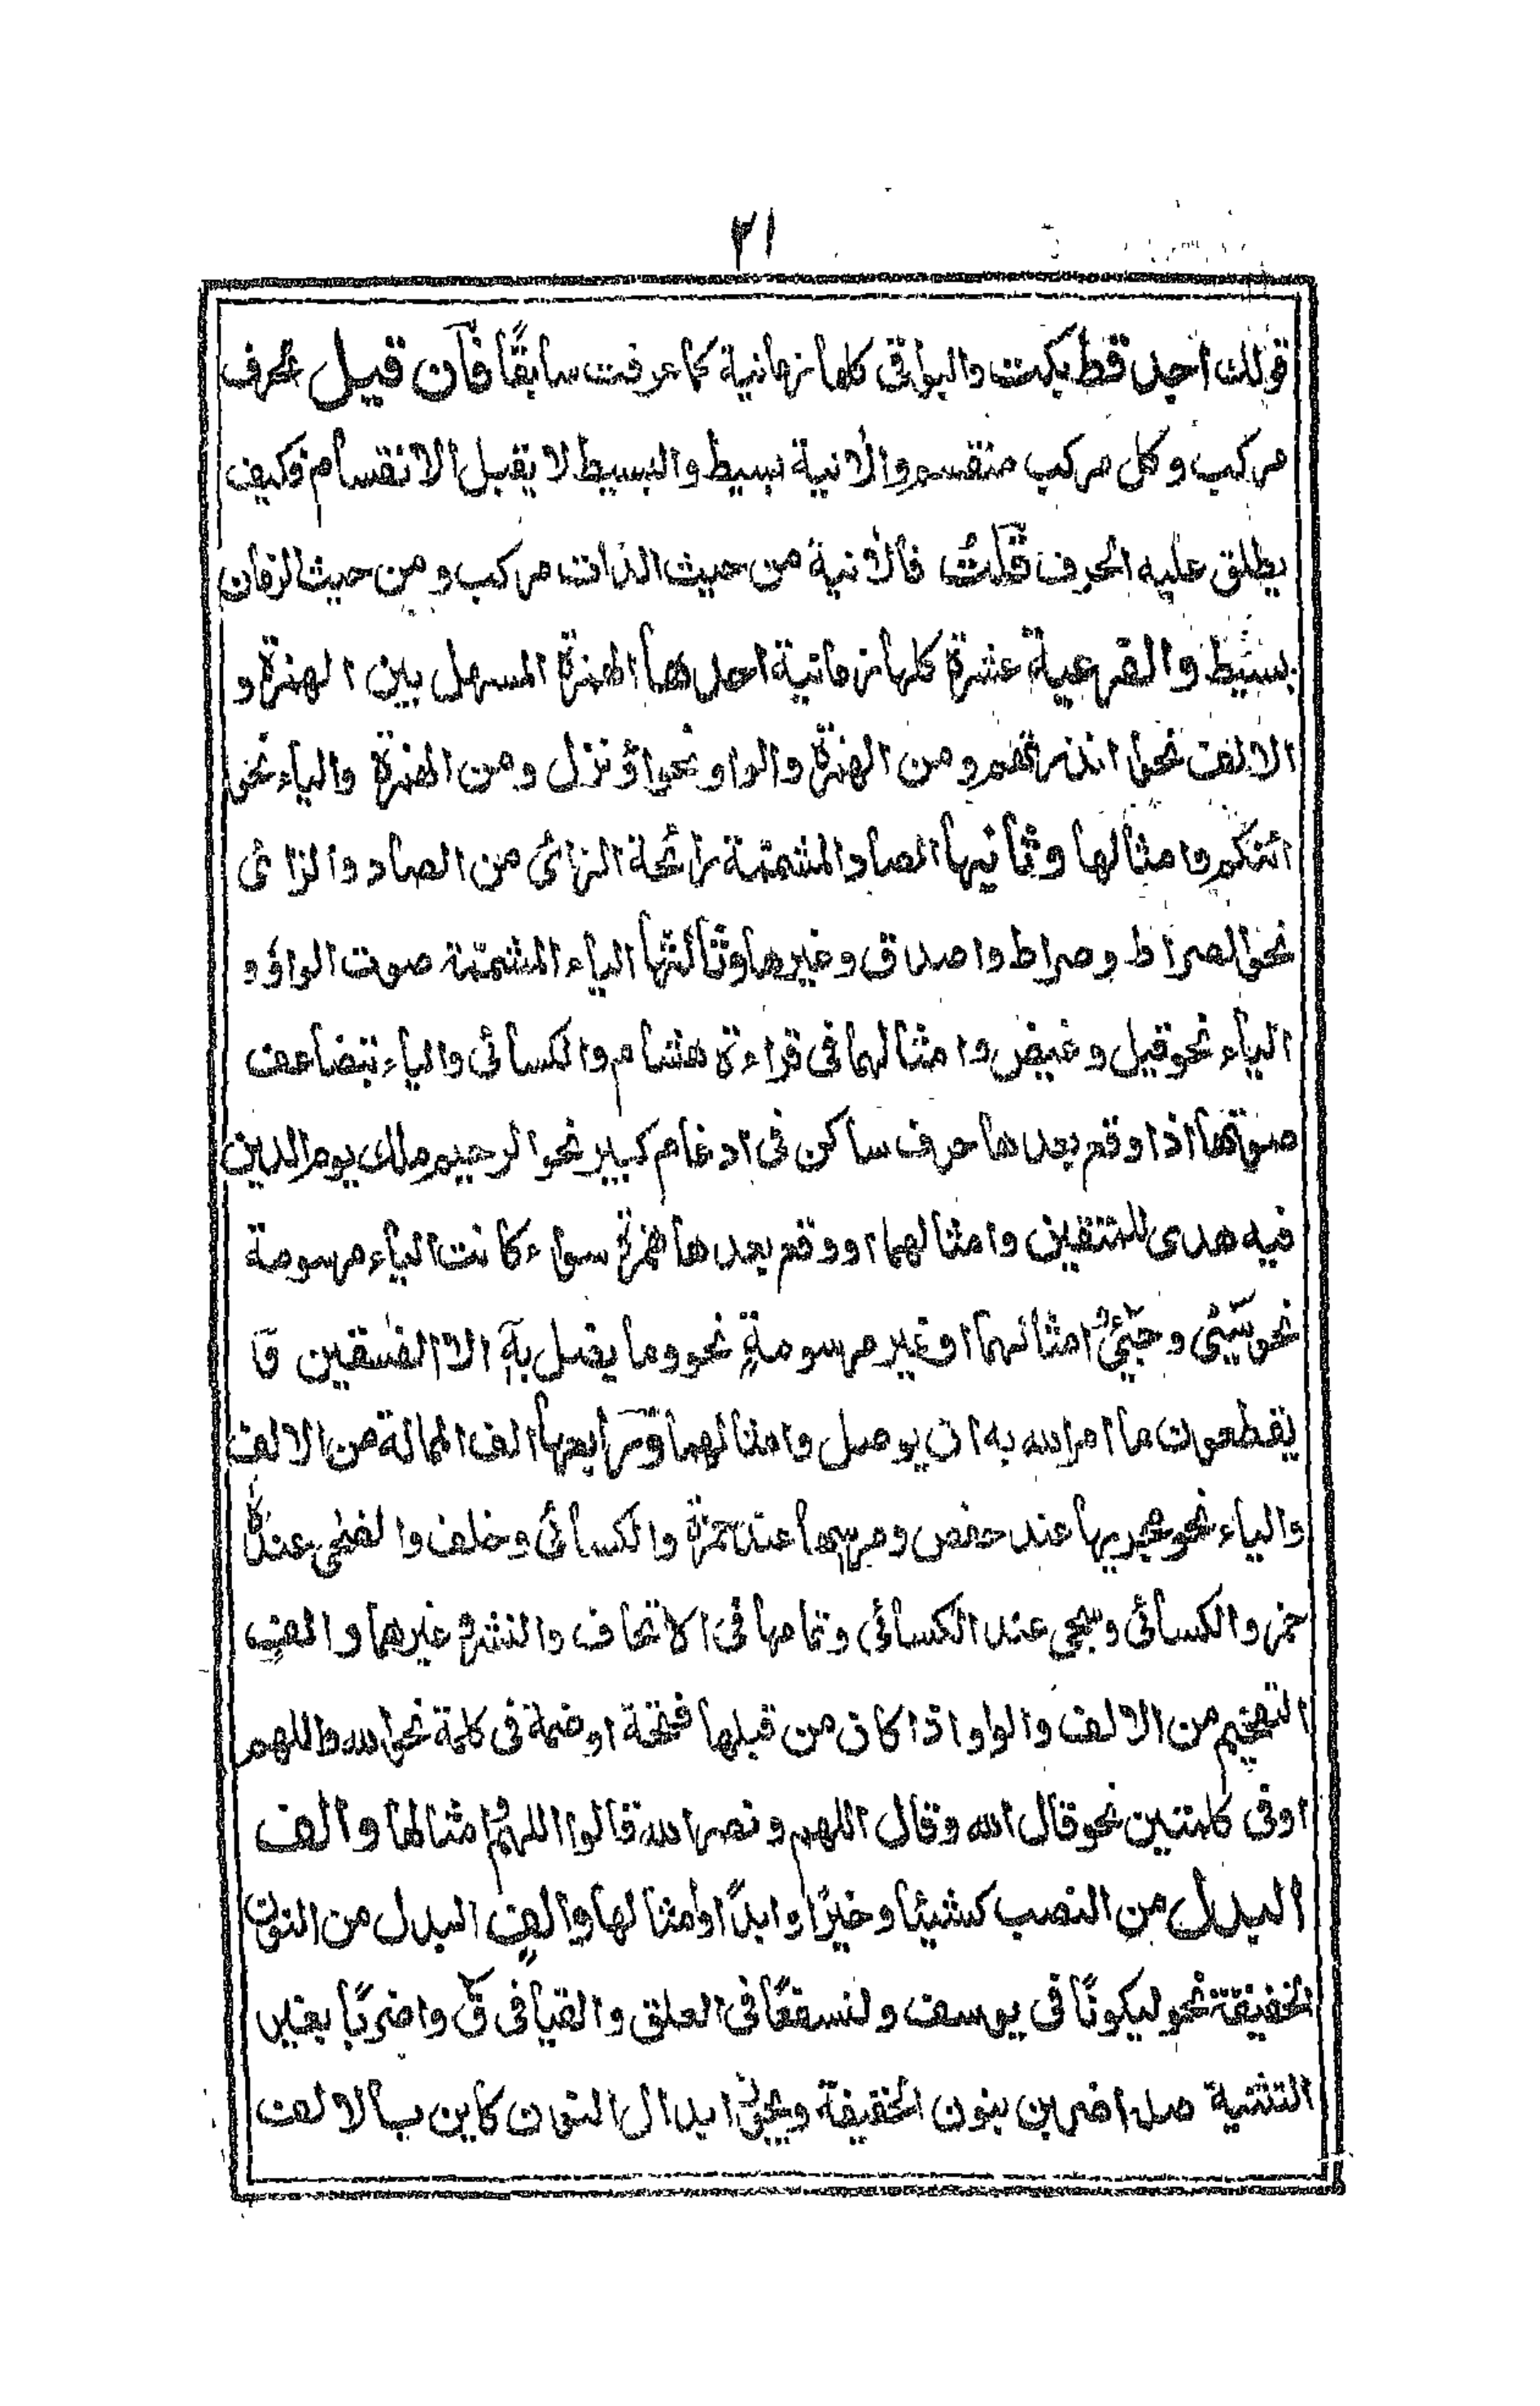 ٢١
قولك اجد قط بكت والبواقى كلها زمانية كما عرفت سابقًا فان قيل الحرف
مركب وكل مركب منقسم والانية بسيط والبسيط لا يقبل الانقسام فكيف
يطلق عليه الحرف قلت فالانية من حيث الذات مركب ومن حيث الزمان
بسيط والفرعية عشرة كلها زمانية احدها الهمزة المسهل بين الهمزة و
الالف نحو ءانذرتهم ومن الهمزة والواو نحو اؤنزل ومن الهمزة والياء نحو
ائنكم وامثالها وثانيها الصاد المشمّة رائحة الزائ من الصاد والزائ
نحو الصراط وصراط واصدق وغيرها وثالثها الياء المشمّة صوت الواو و
الياء نحو قيل وغيض وامثالهما فى قراءة هشام والكسائى والياء تتضاعف
صوتها اذا وقع بعدها حرف ساكن فى ادغام كبير نحو الرحيم ملك يوم الدين
فيه هدى للمتقين وامثالهما او وقع بعدها همزة سواء كانت الياء مرسومة
نحو سيئ وجيئ وامثالهما او غير مرسومةٍ نحو وما يضل بهٖ الا الفسقين و
يقطعون ما امر الله به ان يوصل وامثالهما ورابعها الف الممالة من الالف
والياء نحو مجريها عند حفص ومرسها عند حمزة والكسائى وخلف والضحى عند
حمز والكسائى وسجى عند الكسائى وتمامها فى الاتحاف والنشر وغيرهما والف
التفخيم من الالف والواو اذا كان من قبلها فتحة او ضمة فى كلمة نحو الله واللهم
او فى كلمتين نحو قال الله وقال اللهم ونصر الله قالوا اللهم وامثالها والف
البدل من النصب كشيئا وخيرًا وابدًا وامثالها والف البدل من النون
الخفيفة نحو ليكونًا فى يوسف ولنسفعًا فى العلق والقيا فى قٓ واضربًا بغير
التثنية صله اضربن بنون الخفيفة ويجئ ابدال النون كاين بالالف